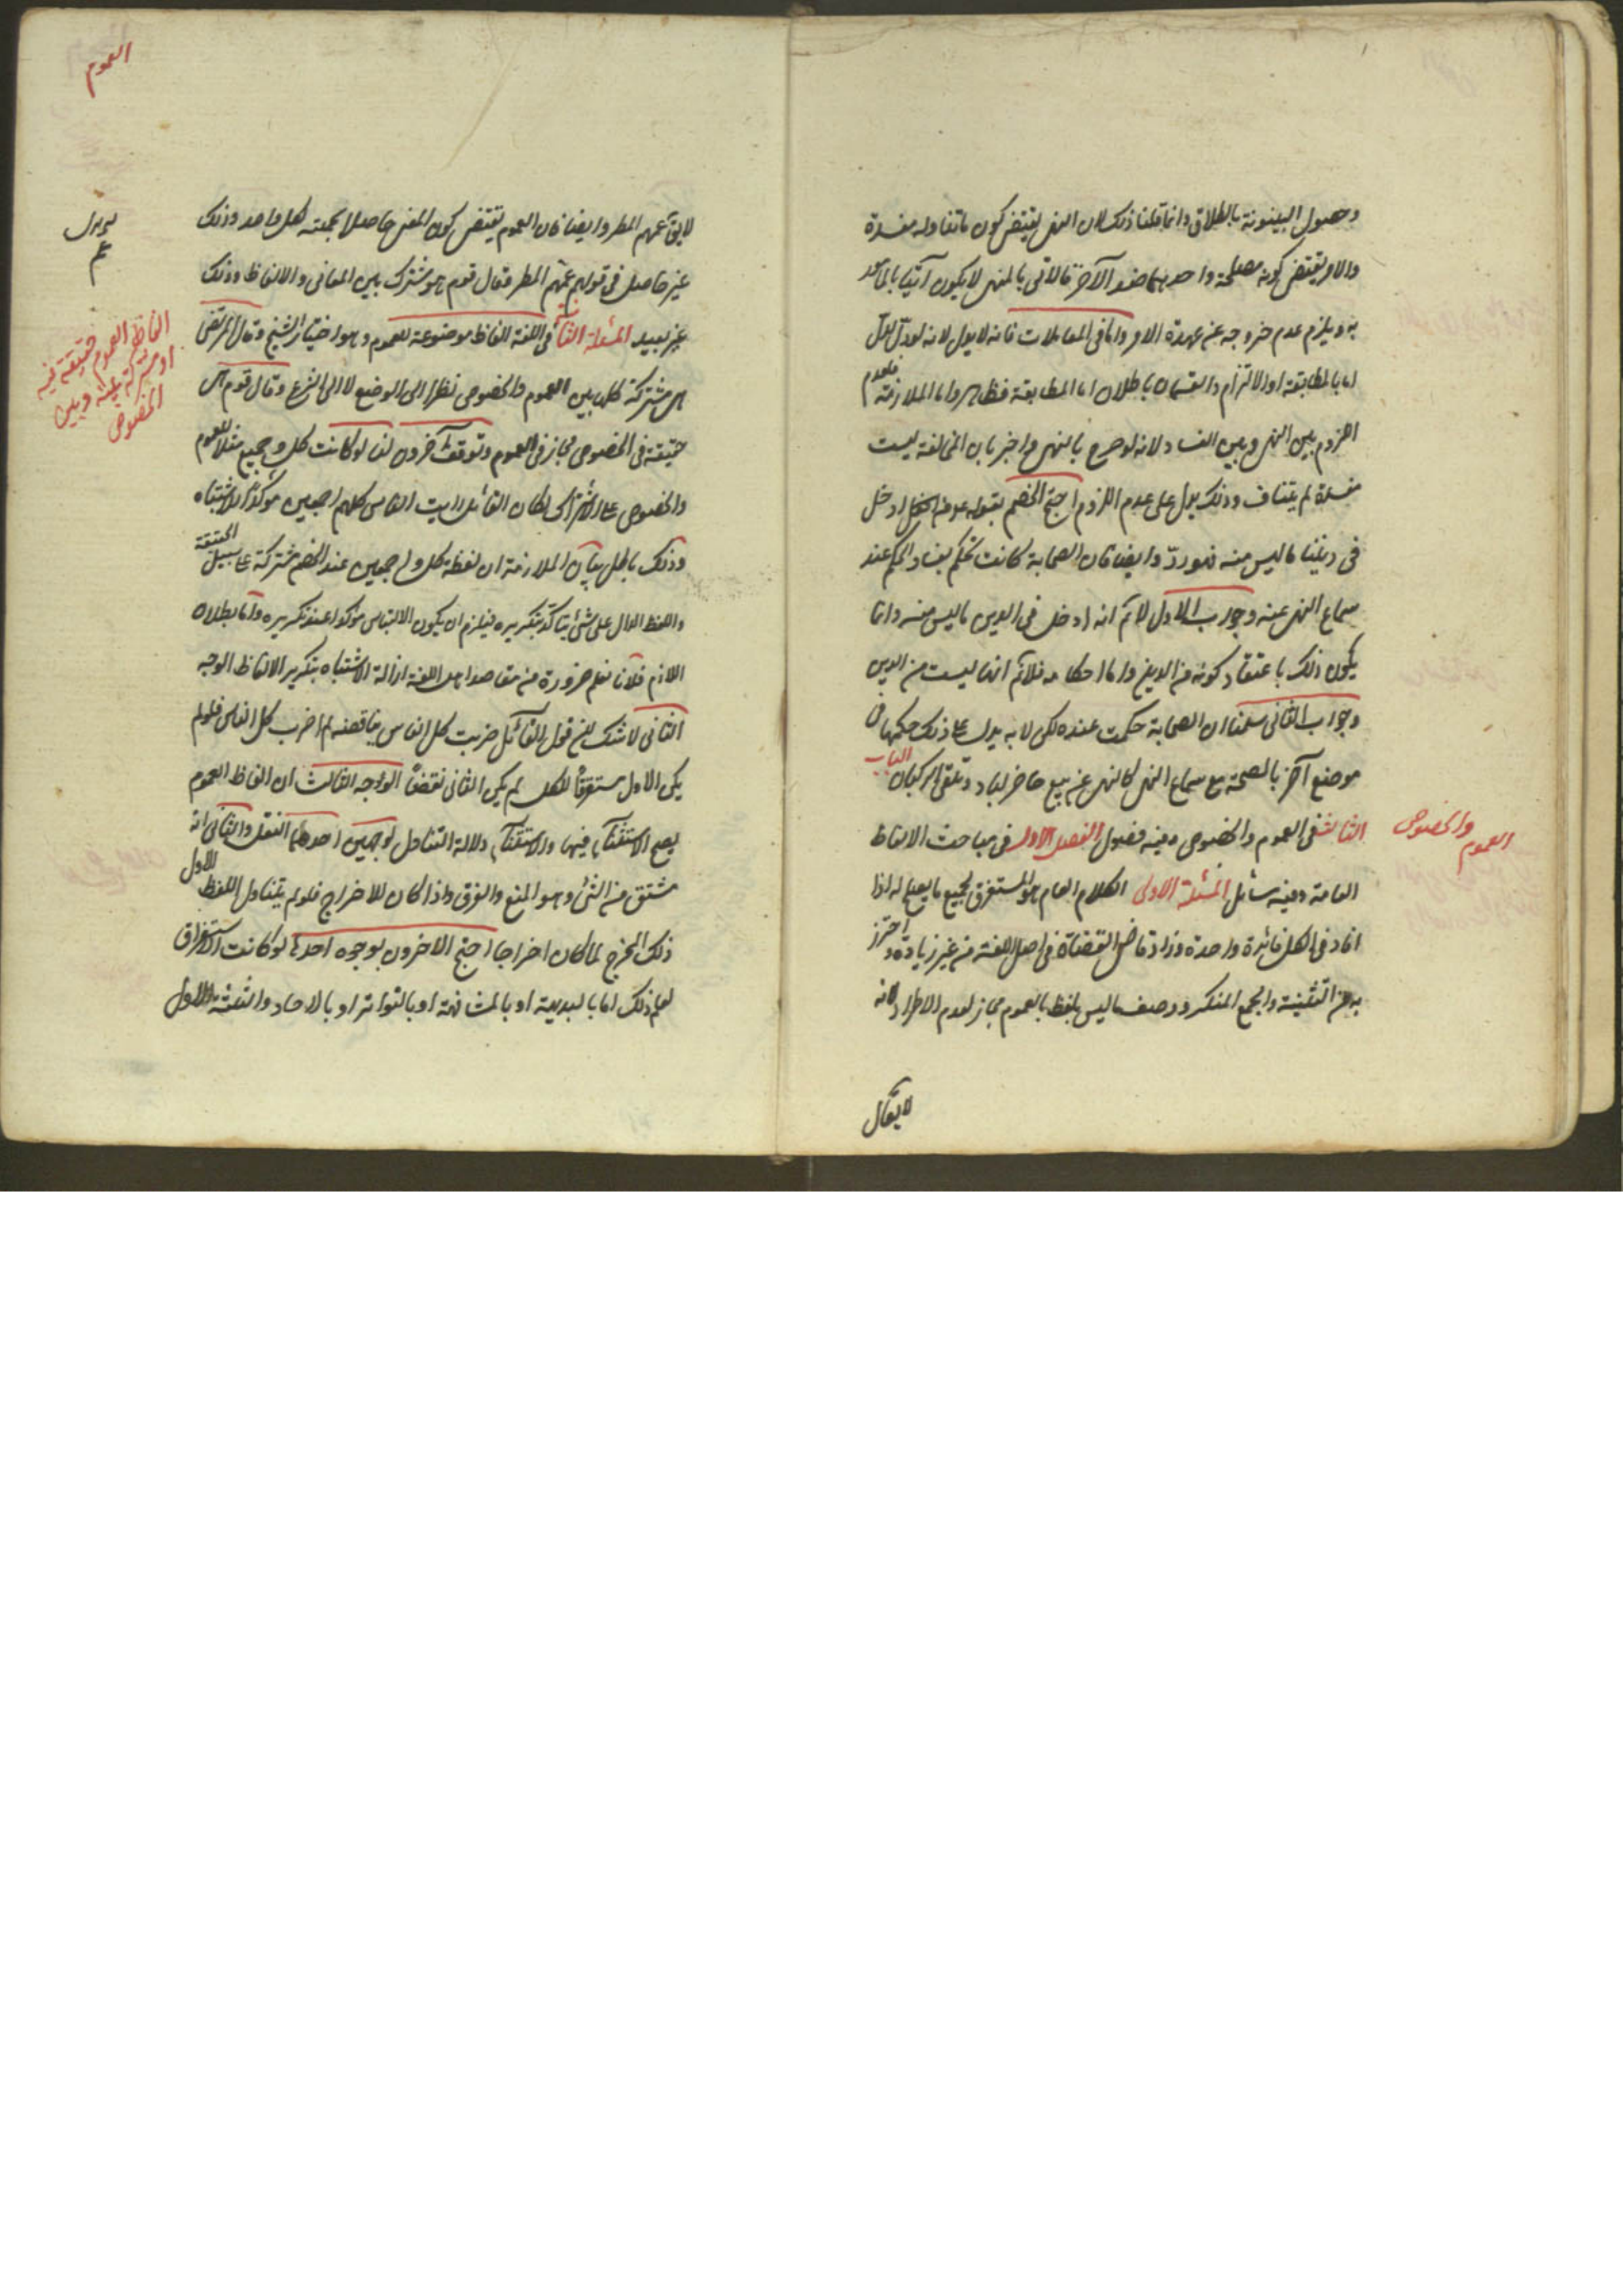 وحصول البينونة بالطلاق وانما قلنا ذلك لان النهى يقتضى كون ماتناوله مفسدة
والامر يقتضى كونه مصلحة واحدهما ضد الآخر فالآتى بالمنهى لايكون آتيا بالمأمور
به ويلزم عدم خروجه عن عهدة الامر واما فى المعاملات فانه لايدل لانه لودل لدل
اما بالمطابقة او الالتزام والقسمان باطلان اما المطابقة فظاهر واما الملازمة فلعدم
اللزوم بين النهى وبين الفساد لانه لو صرح بالنهى واخبر بان المخالفة ليست
مفسدة لم يتناف وذلك يدل على عدم اللزوم احتج الخصم بقوله من ادخل
فى ديننا ماليس منه فهو ردّ وايضا فان الصحابة كانت تحكم بفساد الحكم عند
سماع النهى عنه وجواب الاول لانم انه ادخل فى الدين ماليس منه وانما
يكون ذلك باعتقاد كونه من الدين واما احكامه فلانم انها ليست من الدين
وجواب الثانى سلمنا ان الصحابة حكمت عنده لكن لا به يدل على ذلك حكمها فى
موضع آخر بالصحة مع سماع النهى كالنهى عن بيع حاضر لباد وتلقى الركبان الباب
الثالث فى العموم والخصوص وفيه فصول الفصل الاول فى مباحث الالفاظ
العموم والخصوص
العامة وفيه مسائل المسئلة الاولى الكلام العام هو المستغرق لجميع مايصلح له اذا
افاد فى الكل فائدة واحدة وزاد قاضى القضاة فى اصل اللغة من غير زيادة واحترز
به من التثنية والجمع المنكر ووصف ماليس بلفظ بالعموم مجاز لعدم الاطراد لانه
لايقال
العموم
لايق عمهم المطر وايضا فان العموم يقتضى كون المعنى حاصلا بجملته لكل واحد وذلك
غير حاصل فى قولهم عمهم المطر وقال قوم هو مشترك بين المعانى والالفاظ وذلك
غير بعيد المسئلة الثانية فى اللغة الفاظ موضوعة للعموم وهو اختيار الشيخ وقال المرتضى
الفاظ العموم حقيقة فيه
او مشتركة بينه وبين
الخصوص
هى مشتركة كلها بين العموم والخصوص نظرا الى الوضع لا الى الشرع وقال قوم هى
حقيقة فى الخصوص مجاز فى العموم وتوقف آخرون لنا لو كانت كل وجميع مثلا للعموم
والخصوص على الاشتراك لكان القائل رايت الناس كلهم اجمعين مؤكدا للاشتباه
وذلك باطل بيان الملازمة ان لفظة كل واجمعين عند الخصم مشتركة على سبيل الحقيقة
واللفظ الدال على شئ يتأكد بتكريره فيلزم ان يكون الالتباس مؤكدا عند تكريره واما بطلان
اللازم فلانا نعلم ضرورة من مقاصد اهل اللغة ازالة الاشتباه بتكرير الالفاظ الوجه
الثانى لاشك ان قول القائل ضربت كل الناس يناقضه لم اضرب كل الناس فلو لم
يكن الاول مستغرقا للكل لم يكن الثانى نقضا الوجه الثالث ان الفاظ العموم
يصح الاستثناء فيها والاستثناء دلالة التناول لوجهين احدهما النقل والثانى انه
مشتق من الثنى وهو المنع والفرق واذا كان للاخراج فلو لم يتناول اللفظ الاول
ذلك المخرج لما كان اخراجا احتج الاخرون بوجوه احدها لو كانت للاستغراق
لعلم ذلك اما بالبديهة او بالمشافهة او بالتواتر او بالاحاد والثلثة الاول